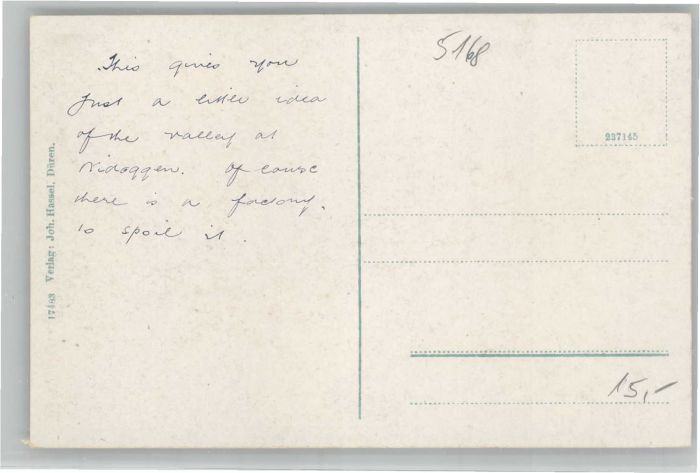 This gives you
just a little idea
of the valley at
Nidoggen. Of course
there is a factory.
to spoil it.
5168
237145
15,-
17483 Verlag: Joh. Hassel, Düren.